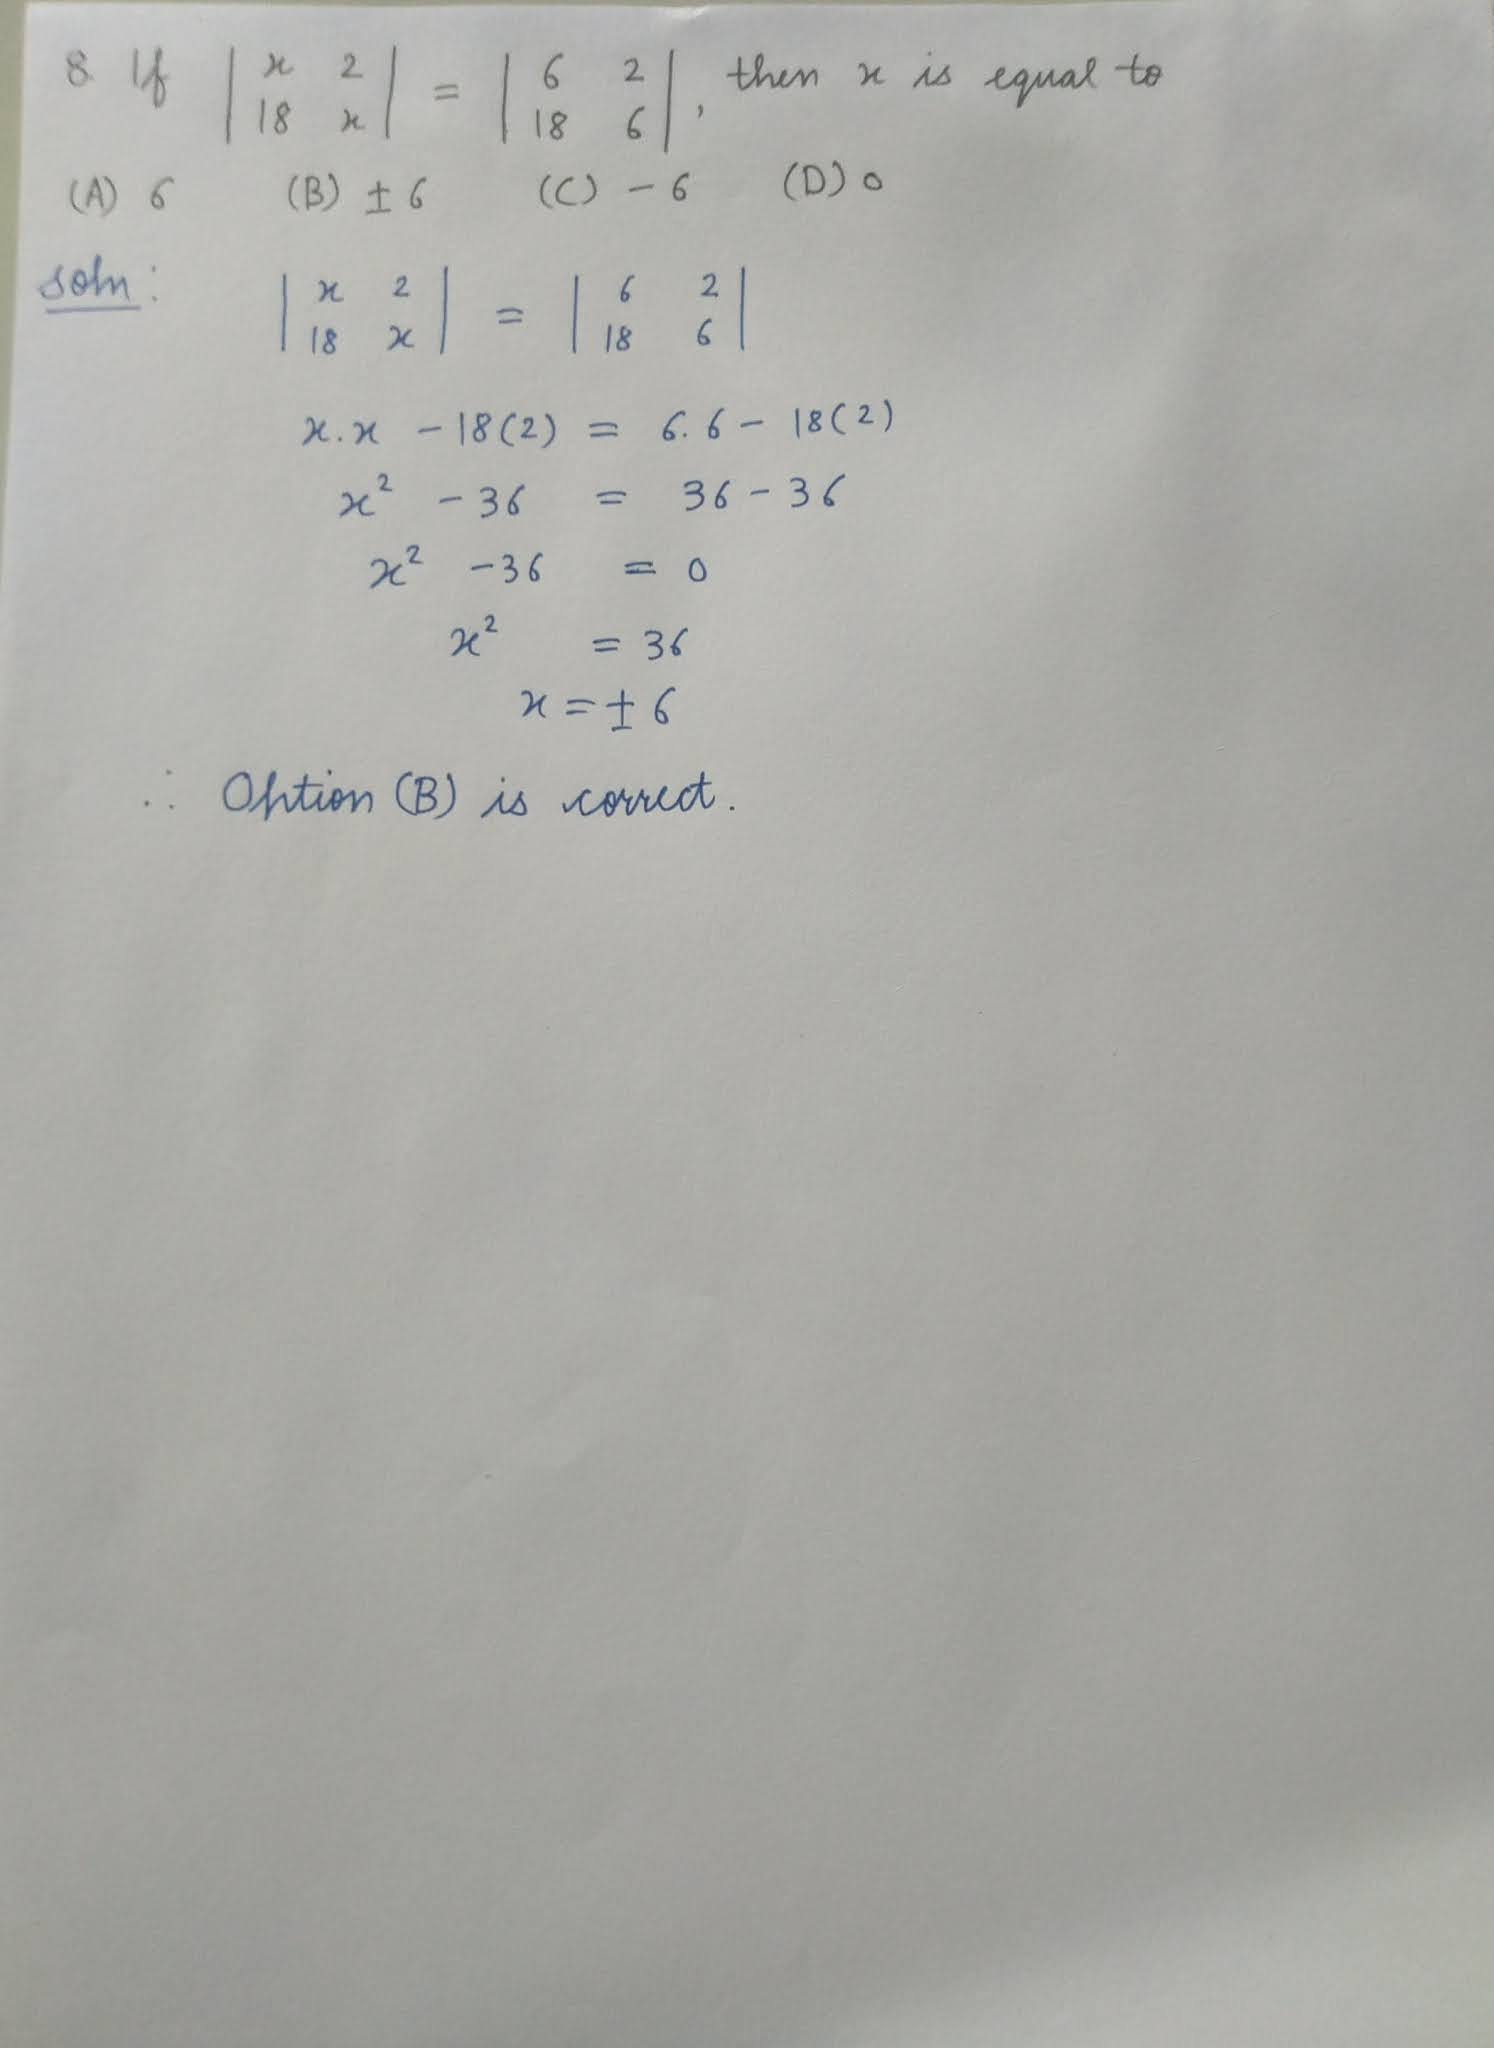 8. If | x 2 | = | 6 2 |, then x is equal to
| 18 x | | 18 6 |
(A) 6 (B) ± 6 (C) - 6 (D) 0
soln: | x 2 | = | 6 2 |
| 18 x | | 18 6 |
x.x - 18(2) = 6.6 - 18(2)
x² - 36 = 36 - 36
x² - 36 = 0
x² = 36
x = ± 6
∴ Option (B) is correct.